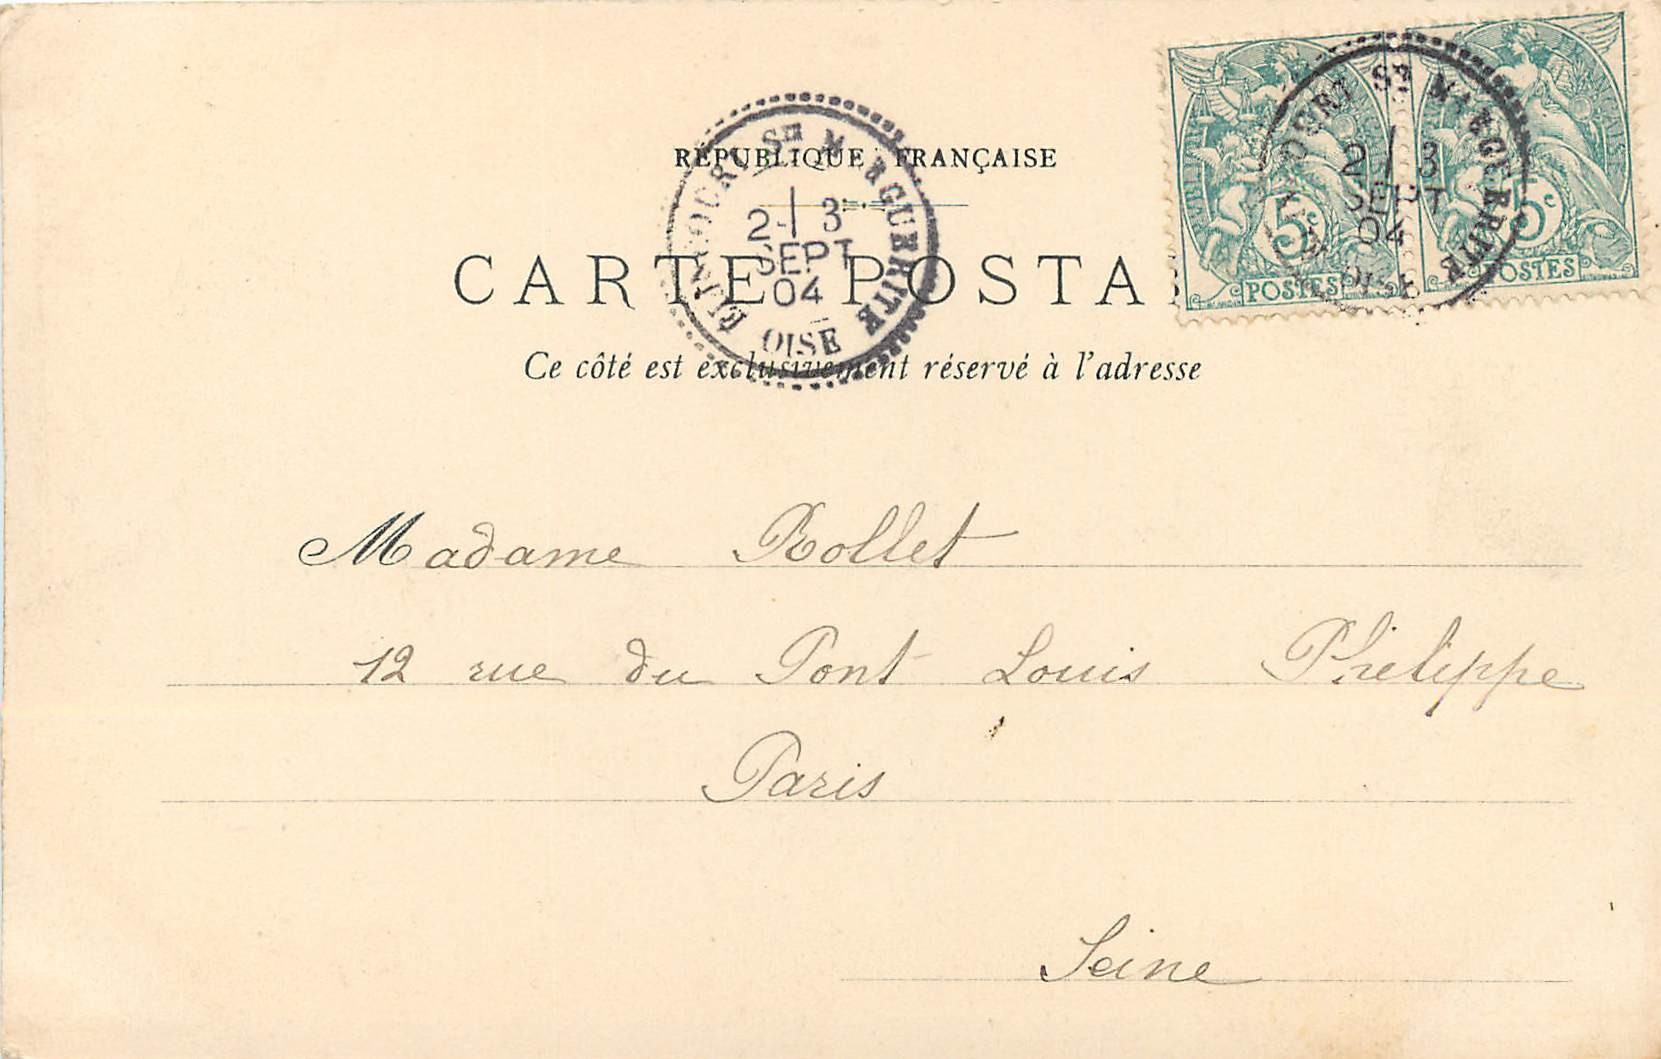 RÉPUBLIQUE FRANÇAISE
CARTE POSTA
Ce côté est exclusivement réservé à l'adresse
ÉLINCOURT STE MARGUERITE
2 3
SEPT
04
OISE
STE MARGUERITE
2 3
SEPT
04
OISE
5c
POSTES
5c
POSTES
Madame Rollet
12 rue du Pont Louis Philippe
Paris
Seine